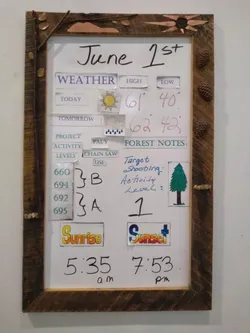 June 1st
WEATHER HIGH LOW
TODAY 61° 40°
TOMORROW 62° 42°
PROJECT ACTIVITY LEVEL
PALS
CHAIN SAW USE
FOREST NEWS
660
694 } B
692
695 } A
Target
Shooting
Activity
Level:
1
Sunrise Sunset
5:35 am 7:53 pm